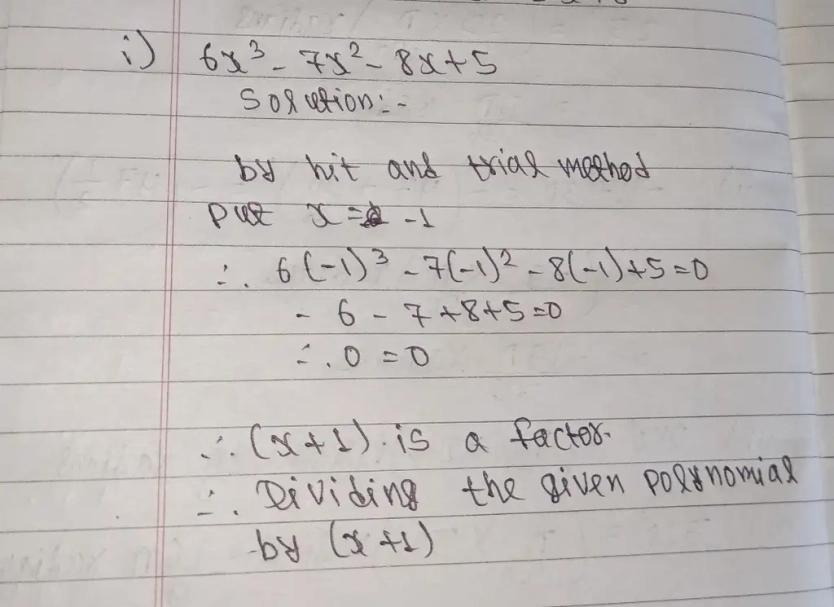 i) 6x³ - 7x² - 8x + 5
Solution:-
by hit and trial method
put x = -1
∴ 6(-1)³ - 7(-1)² - 8(-1) + 5 = 0
- 6 - 7 + 8 + 5 = 0
∴ 0 = 0
∴ (x+1) is a factor.
∴ Dividing the given polynomial
by (x+1)